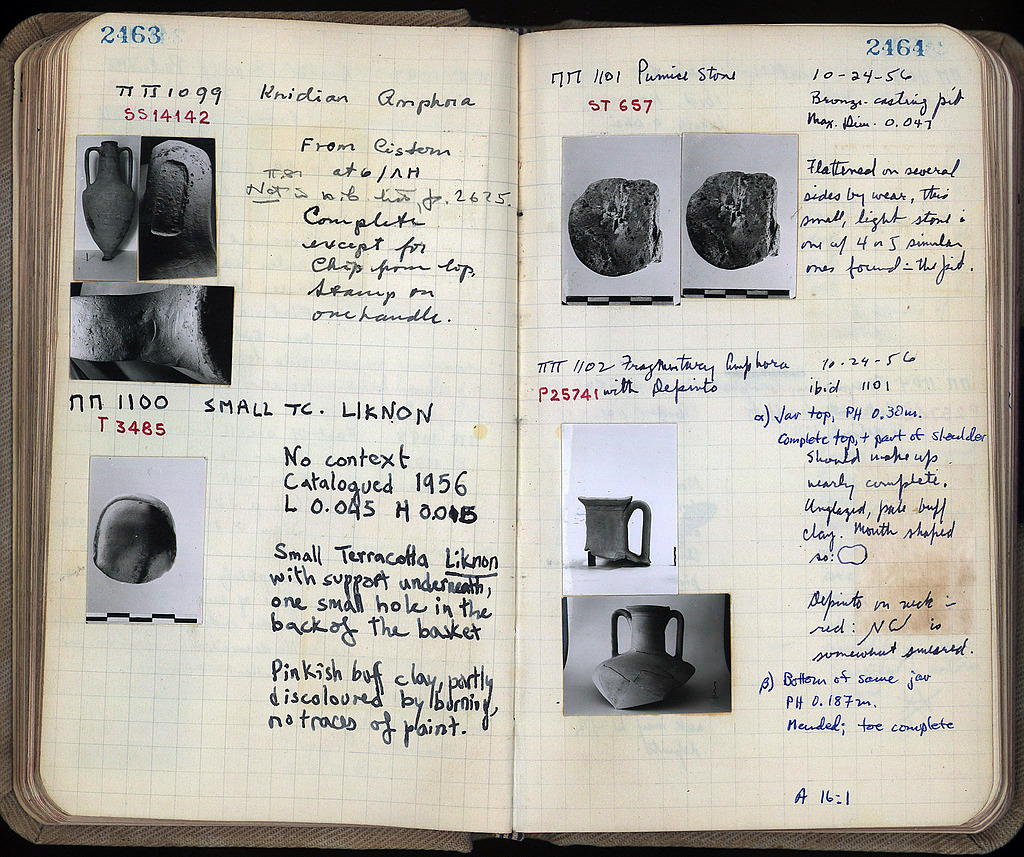 2463
ΠΠ 1099 Knidian Amphora
SS14142
From Cistern
at 6/ΛΗ
Not in p. 2625.
Complete
except for
chip from lip,
stamp on
one handle.
ΠΠ 1100 SMALL TC. LIKNON
T 3485
No context
Catalogued 1956
L 0.045 H 0.015
Small Terracotta Liknon
with support underneath,
one small hole in the
back of the basket
Pinkish buff clay, partly
discoloured by burning,
no traces of paint.
2464
ΠΠ 1101 Pumice Stone 10-24-56
ST 657 Bronze-casting pit
Max. Dim. 0.047
Flattened on several
sides by wear, this
small, light stone is
one of 4 or 5 similar
ones found in the pit.
ΠΠ 1102 Fragmentary Amphora 10-24-56
P25741 with Depinto ibid 1101
α) Jar top, PH 0.30m.
Complete top, + part of shoulder
Should make up
nearly complete.
Unglazed, pale buff
clay. Mouth shaped
so:
Depinto on neck in
red: is
somewhat smeared.
β) Bottom of same jar
PH 0.187m.
Mended; toe complete
A 16:1